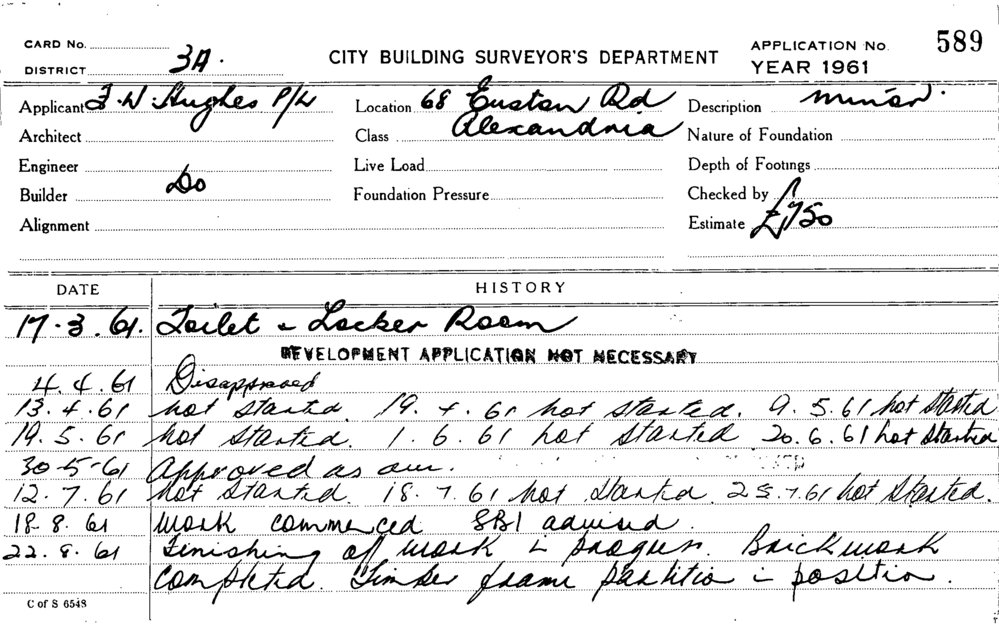 CARD No.
DISTRICT 3A.
CITY BUILDING SURVEYOR'S DEPARTMENT
APPLICATION No. 589
YEAR 1961
Applicant F. W. Hughes P/L Location 68 Euston Rd Description minor.
Architect Class Alexandria Nature of Foundation
Engineer Live Load Depth of Footings
Builder Do Foundation Pressure Checked by
Alignment Estimate £750
DATE HISTORY
17.3.61. Toilet & Locker Room
DEVELOPMENT APPLICATION NOT NECESSARY
4.4.61 Disapproved
13.4.61 not started 19.4.61 not started. 9.5.61 not started
19.5.61 not started. 1.6.61 not started 20.6.61 not started
30-5-61 Approved as am.
12.7.61 not started. 18.7.61 not started 25.7.61 not started.
18-8.61 work commenced SBI advised.
22.8.61 Finishing of work in progress. Brickwork
completed. Timber frame partition in position.
C of S 6548